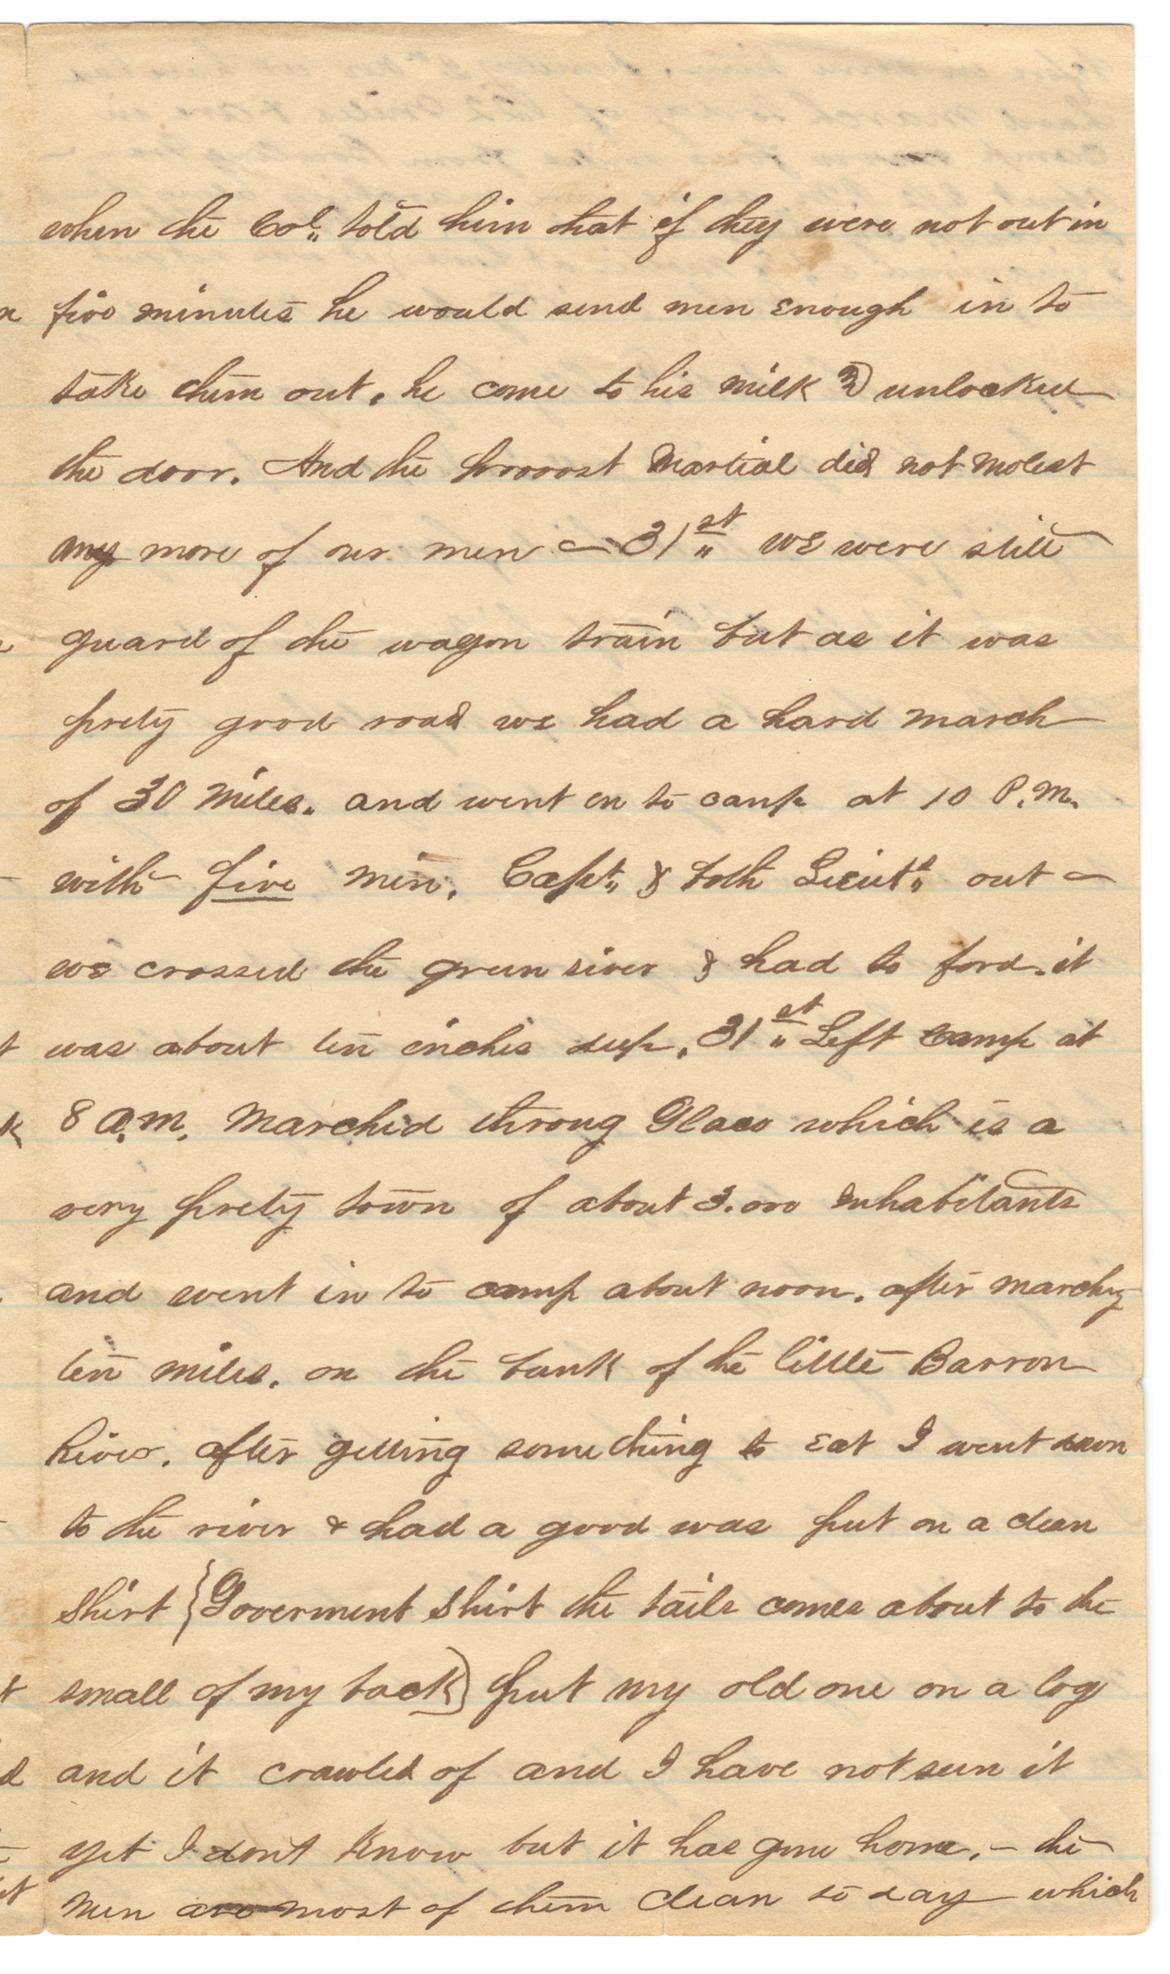 when the Col. told him that if they were not out in
five minutes he would send men enough in to
take them out. he come to his milk & unlocked
the door. And the Provost Martial did not molest
any more of our men — 31st we were still
guard of the wagon train but as it was
prety good road we had a hard march
of 30 miles. and went in to camp at 10 P.M.
with five men. Capt. & both Lieuts out —
we crossed the green river & had to ford. it
was about ten inches deep. 31st Left camp at
8 a.m. Marched throug Glaco which is a
very prety town of about 3.000 inhabitants
and went in to camp about noon. after marchg
ten miles. on the bank of the little Barron
River. after getting something to eat I went down
to the river & had a good was put on a clean
shirt {Goverment shirt the tails comes about to the
small of my back} put my old one on a log
and it crawled of and I have not seen it
yet I dont know but it has gone home. — the
men are most of them clean to day which